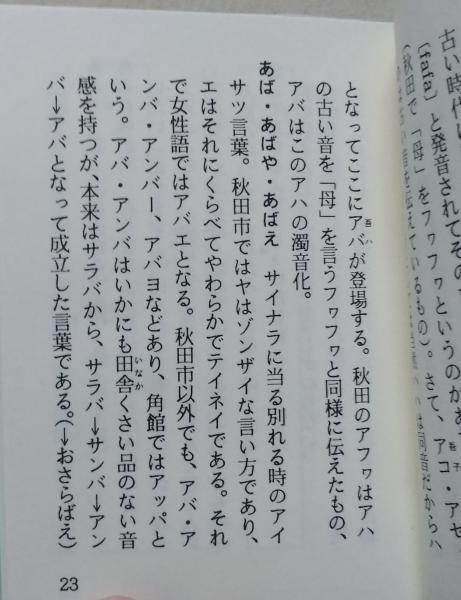 古い時代
〔fafa〕と発音されてその
(秋田で「母」をフヮフヮというのがあ
音を伝えているもの)。さて、アコ・アセ
吾子
同音だからハ
となってここにアバが登場する。秋田のアフヮはアハ
吾ハ
の古い音を「母」を言うフヮフヮと同様に伝えたもの、
アバはこのアハの濁音化。
あば・あばや・あばえ　サイナラに当る別れる時のアイ
サツ言葉。秋田市ではヤはゾンザイな言い方であり、
エはそれにくらべてやわらかでテイネイである。それ
で女性語ではアバエとなる。秋田市以外でも、アバ・ア
ンバ・アンバー、アバヨなどあり、角館ではアッパと
いう。アバ・アンバはいかにも田舎くさい品のない音
いなか
感を持つが、本来はサラバから、サラバ→サンバ→アン
バ→アバとなって成立した言葉である。(→おさらばえ)
23